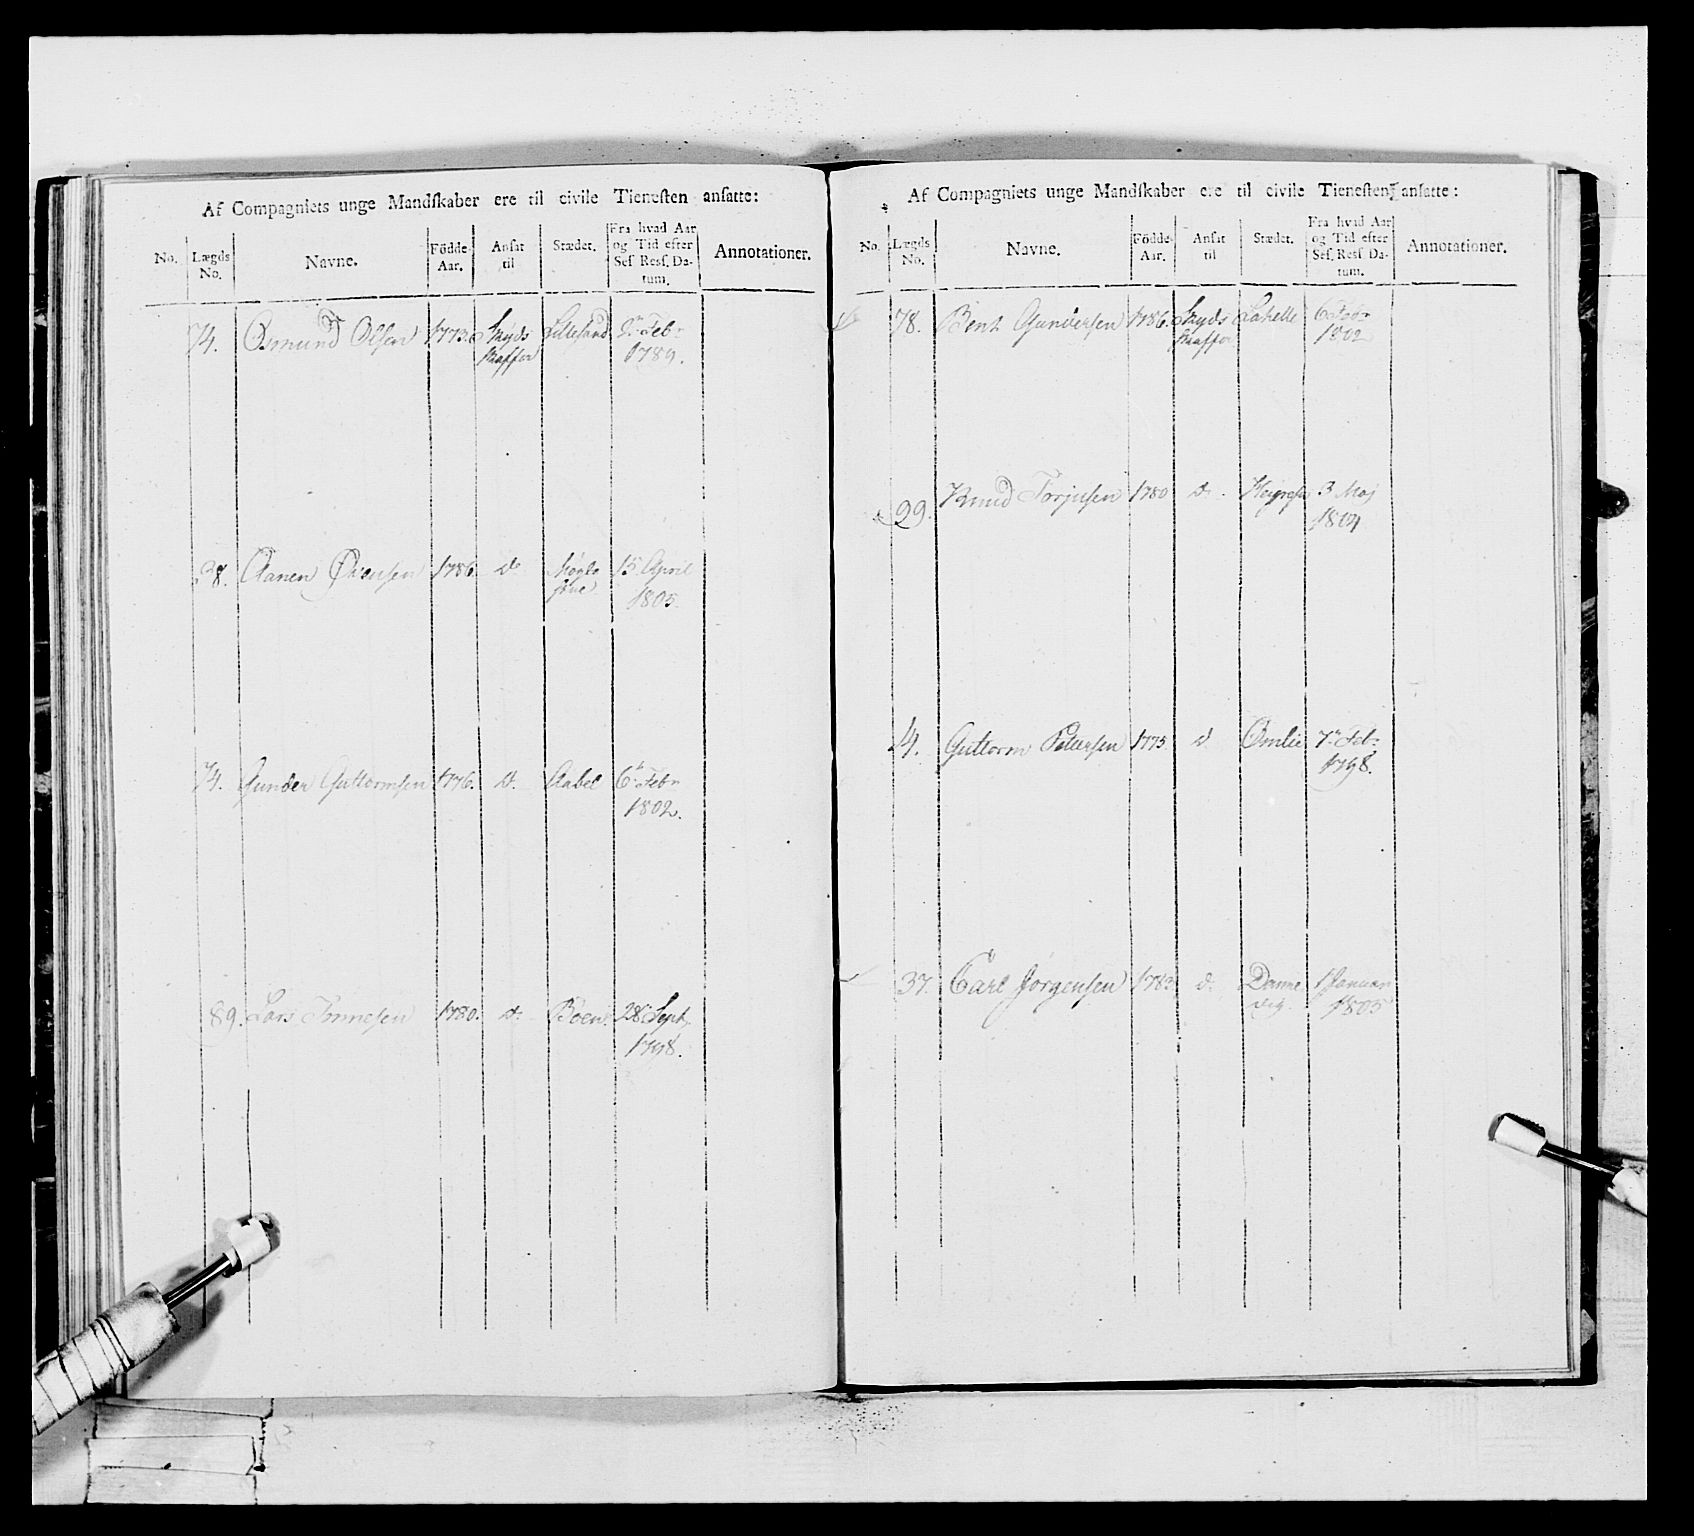 Af Compagniets unge Mandskaber ere til civile Tienesten ansatte:
No. Lægds No. Navne. Födde Aar. Ansat til Stædet. Fra hvad Aar og Tid efter Ses. Res. Datum. Annotationer.
74. Osmund Olsen 1773. Skyds Lillesand 2n Febr
skaffer 1789.
38. Aanen 1786. do 15 April
1805.
74. Gunder Guttormsen 1776. do. Aabel 6n Febr
1802.
89. Lars Tønnesen 1780. do. Boen 28 Sept.
1798.
Af Compagniets unge Mandskaber ere til civile Tienesten ansatte:
No. Lægds No. Navne. Födde Aar. Ansat til Stædet. Fra hvad Aar og Tid efter Ses. Res. Datum. Annotationer.
78. Bent Gundersen 1786. Skyds Lahelle 6 Febr
skaffer 1802
99. Knud Torjusen 1780 do. 3 Maj
1804
14. Guttorm Pettersen 1775 do Omlie 7n Febr
1798.
37. Carl Jörgensen 1783 do. Danne 1 Januar
vig. 1805